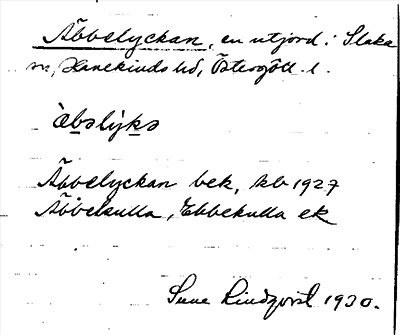 Äbbelyckan, en utjord i Slaka
sn, Hanekinds hd, Östergötl. l.
àbslýks
Äbbelyckan bek, kb 1927
Äbbekulla, Ebbekulla ek
Sune Lindqvist 1930.